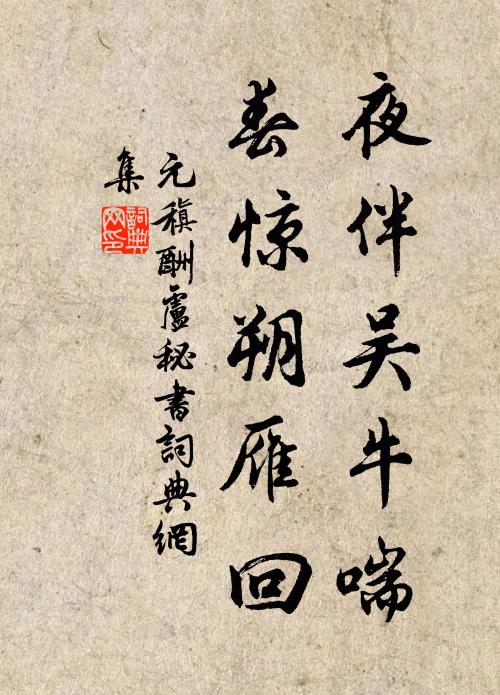 夜伴吴牛喘
春惊朔雁回
元稹酬盧秘書詞典網
集
詞典
网印